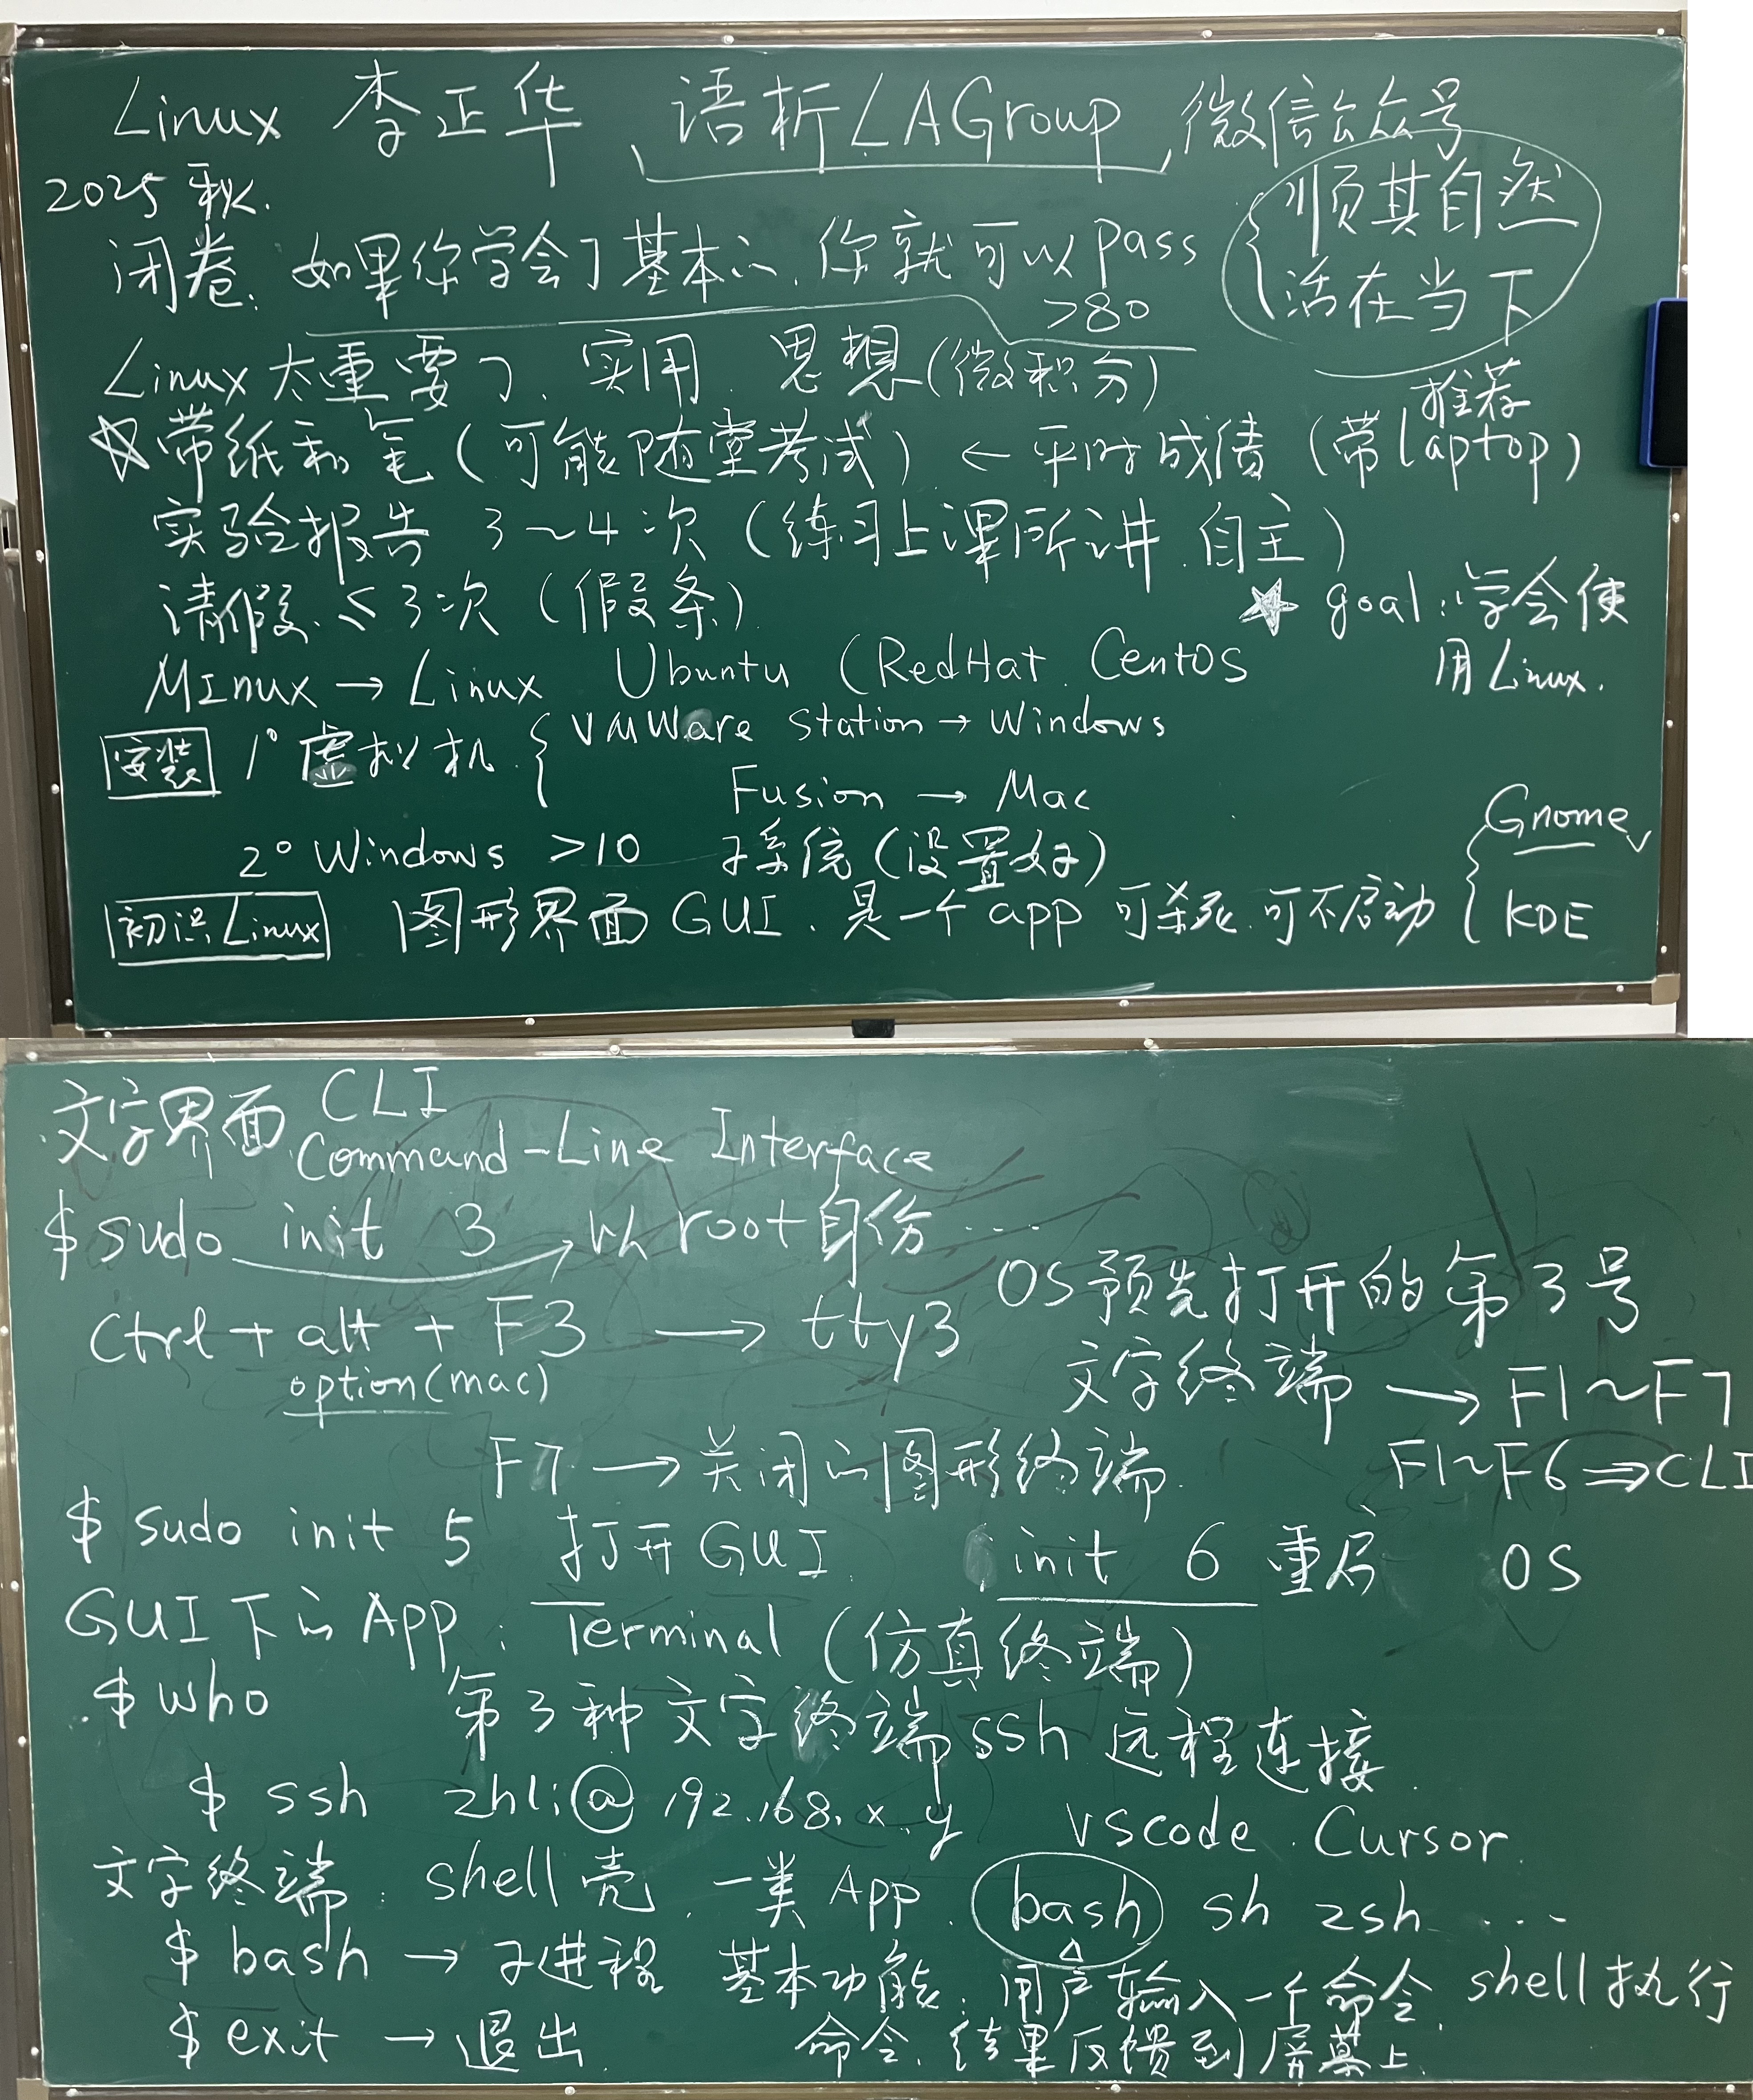 Linux 李正华 语析LAGroup 微信公众号
2025秋.
顺其自然
活在当下
闭卷: 如果你学会了基本的, 你就可以pass
>80
Linux太重要了. 实用. 思想(微积分)
推荐
☆带纸和笔(可能随堂考试) ← 平时成绩 (带laptop)
实验报告 3~4次 (练习上课所讲, 自主)
请假 ≤3次 (假条)
★ goal: 学会使
用Linux.
MInux → Linux Ubuntu (RedHat. CentOS
安装 1° 虚拟机 { VMWare Station → Windows
Fusion → Mac
2° Windows >10 子系统(设置好)
初识Linux 图形界面 GUI. 是一个app 可杀死. 可不启动 { Gnome ✓
KDE
文字界面 CLI
Command-Line Interface
$ sudo init 3 → 以root身份...
Ctrl + alt + F3 → tty3 OS预先打开的第3号
option(mac)
文字终端 → F1~F7
F7 → 关闭的图形终端. F1~F6 ⇒ CLI
$ sudo init 5 打开GUI. init 6 重启 OS
GUI下的App: Terminal (仿真终端)
$ who 第3种文字终端 ssh 远程连接.
$ ssh zhli@192.168.x.y vscode. Cursor.
文字终端: shell壳. 一类App. bash sh zsh ...
$ bash → 子进程 基本功能: 用户输入一个命令, shell执行
$ exit → 退出. 命令, 结果反馈到屏幕上.